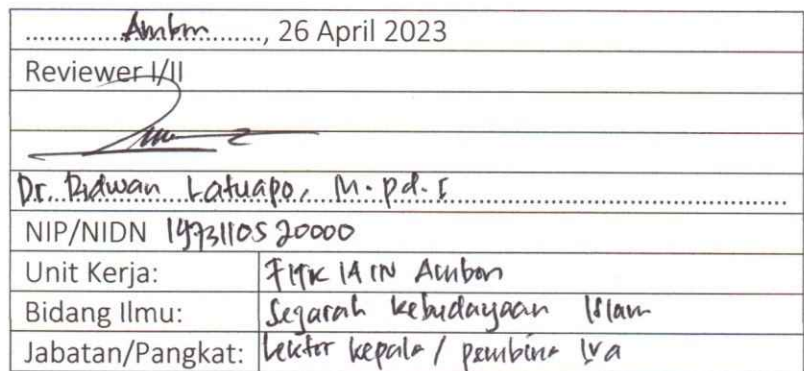 Ambon, 26 April 2023
Reviewer I/II
Dr. Ridwan Latuapo, M.pd.I
NIP/NIDN 19731105 20000
Unit Kerja: FITK IAIN Ambon
Bidang Ilmu: Sejarah kebudayaan Islam
Jabatan/Pangkat: Lektor kepala / pembina IVa